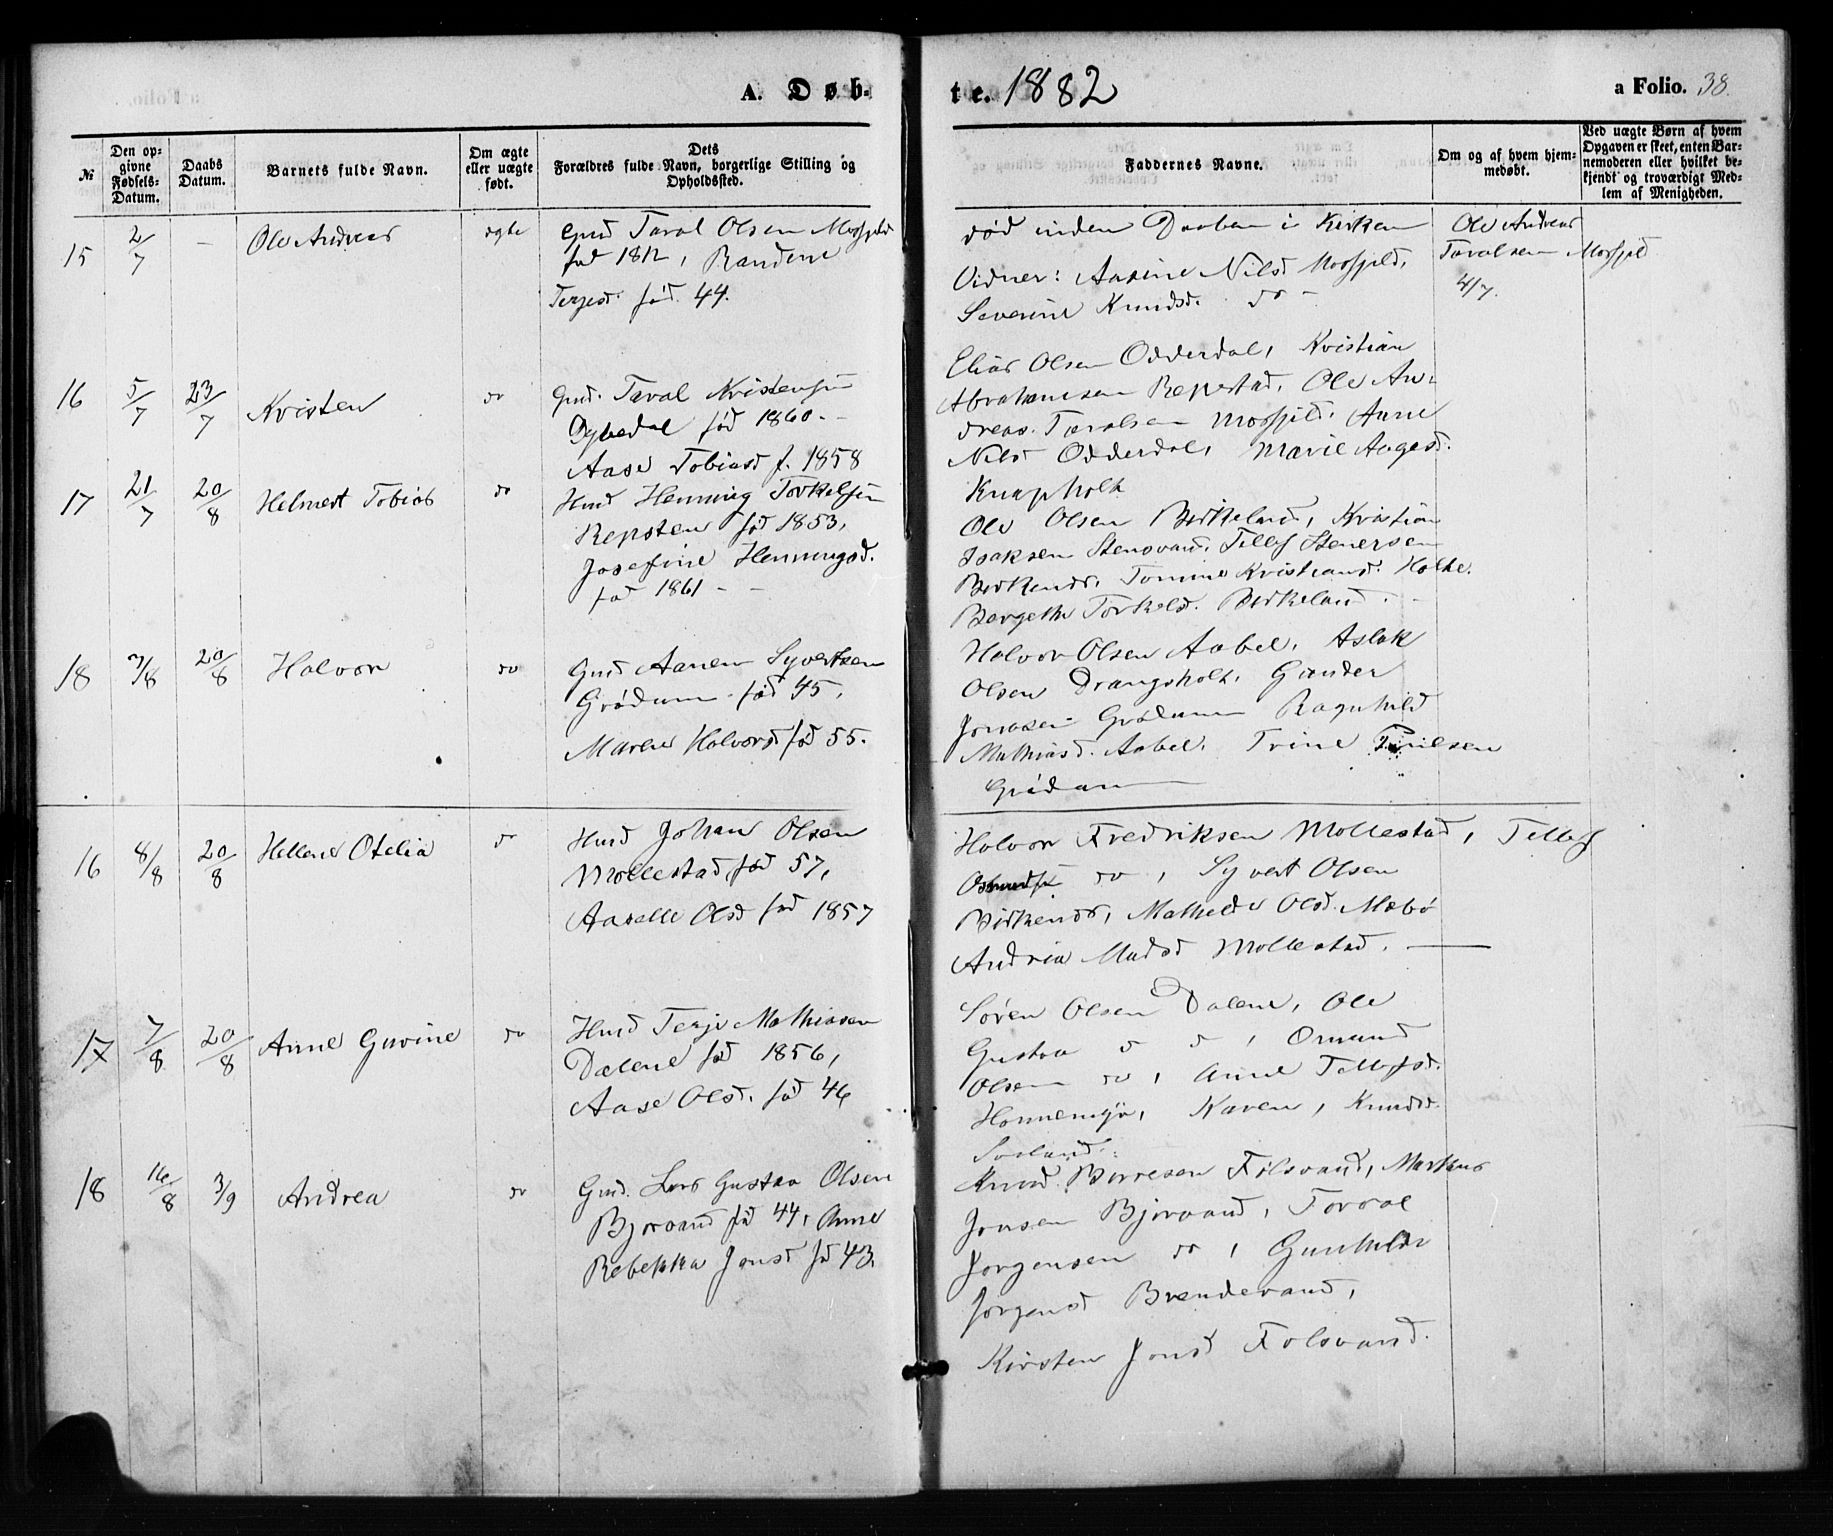 A. Døb-
te. 1882
a Folio. 38.
№
Den op-
givne
Fødsels-
Datum.
Daabs
Datum.
Barnets fulde Navn.
Om ægte
eller uægte
født.
Dets
Forældres fulde Navn, borgerlige Stilling og
Opholdssted.
Faddernes Navne.
Om og af hvem hjem-
medøbt.
Ved uægte Børn af hvem
Opgaven er skeet, enten Bar-
nemoderen eller hvilket be-
kjendt og troværdigt Med-
lem af Menigheden.
15
2/7
-
Ole Andreas
ægte
Gmd Taral Olsen Mosfjeld
fød 1812,
Terjesd. fød. 44.
død inden Daaben i Kirken
Vidner: Aasine Nilsd Mosfjeld,
Severine Knudsd. do -
Ole Andreas
Taralsen Mosfjeld
4/7.
16
5/7
23/7
Kristen
do
Gmd. Taral Kristensen
Dybedal fød 1860. -
Aase Tobiasd f. 1858
Elias Olsen Odderdal, Kristian
Abrahamsen Repstad, Ole An-
dreas Taralsen Mosfjeld. Anne
Nilsd Odderdal, Marie Aagesd.
Knapholt
17
21/7
20/8
Helmert Tobias
do
Hmd Henning Torkelsen
Repsten fød 1853,
Josefine Henningsd.
fød 1861 - -
Ole Olsen Birkeland, Kristian
Isaksen Stensvand, Tellef Stenersen
Birkenes, Tomine Kristiansd. Holte.
Bergethe Torkelsd. Birkeland.
18
7/8
20/8
Halvor
do
Gmd Aanen Syvertsen
Grødum. fød 45,
Maren Halvorsd fød 55.
Halvor Olsen Aabel, Aslak
Olsen Drangsholt, Gunder
Jonasen Grødum Ragnhild
Mathiasd. Aabel. Trine
Grødum
16
8/8
20/8
Hellene Otelia
do
Hmd Johan Olsen
Mollestad, fød 57,
Aaselle Olsd fød 1857
Halvor Fredriksen Mollestad, Tellef
do, Syvert Olsen
Birkenes, Mathilde Olsd. Mæbø
Andrea Madsd Mollestad.
17
7/8
20/8
Anne Guvine
do
Hmd Terje Mathiasen
Dalene fød 1856,
Aase Olsd. fød 46
Søren Olsen Dalene, Ole
Gustav d d, Omund
Olsen do, Anne Tellefsd.
Honnemyr, Karen, Knudsd.
18
16/8
3/9
Andrea
do
Gmd. Lars Gustav Olsen
Bjorvand fød 44, Anne
Rebekka Jonsd fd 43.
Knud Børresen Følsvand, Markus
Jonsen Bjorvand, Torval
Jørgensen do, Gunhilde
Jørgensd Brendevand,
Kirsten Jonsd Følsvand.